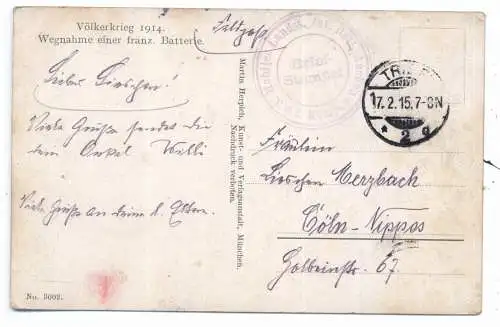 Völkerkrieg 1914.
Wegnahme einer franz. Batterie.
Feldpost
Liebes Lieschen!
Viele Grüße sendet dir
dein Onkel Willi
Viele Grüße an deine l. Eltern.
No. 5002.
Martin Herpich, Kunst- und Verlagsanstalt, München.
Nachdruck verboten.
Brief-
Stempel
TRIER
17.2.15.7-8N
* 2 g
Fräulein
Lieschen Merzbach
Cöln-Nippes
Holbeinstr. 67